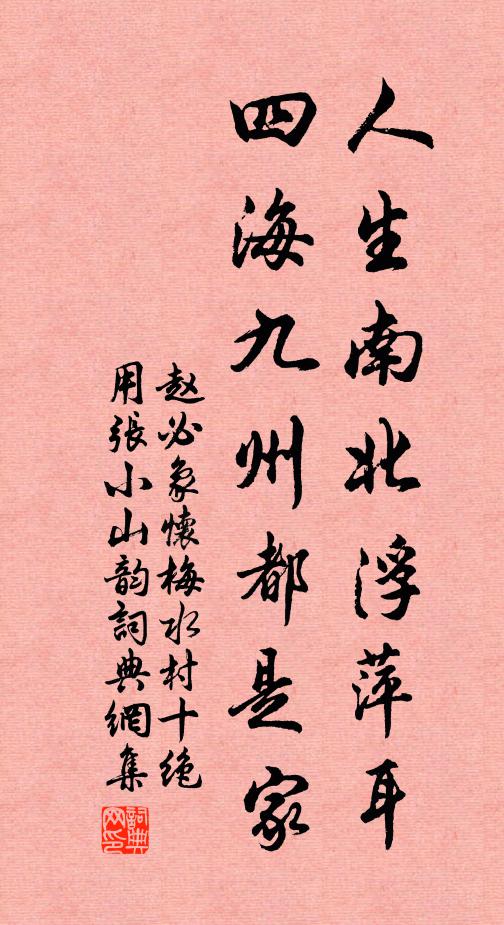 人生南北浮萍耳
四海九州都是家
赵必象懷梅水村十绝
用張小山韵詞典網集
詞典网印